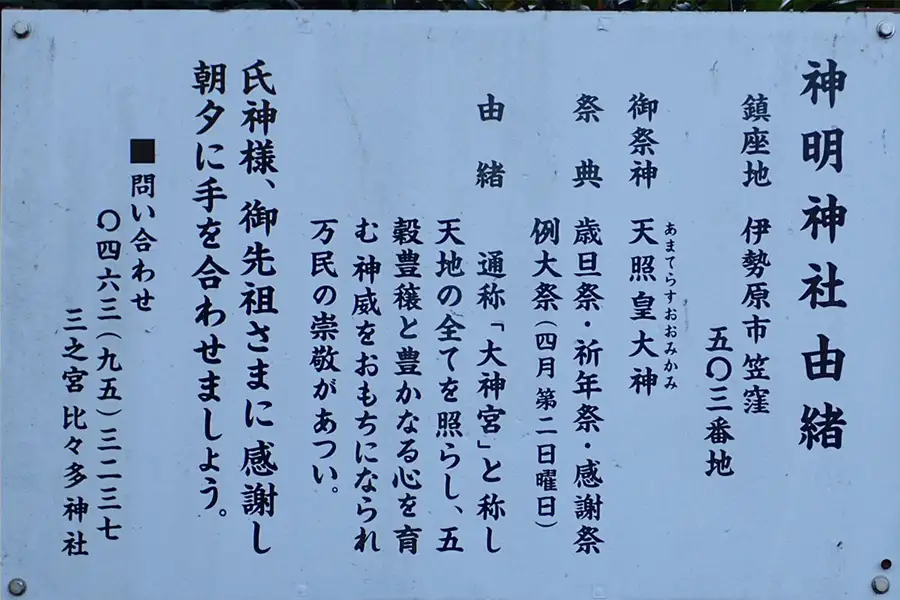 神明神社由緒
鎮座地 伊勢原市笠窪
五〇三番地
御祭神 天照皇大神
あまてらすおおみかみ
祭典 歳旦祭・祈年祭・感謝祭
例大祭(四月第二日曜日)
由緒 通称「大神宮」と称し
天地の全てを照らし、五
穀豊穣と豊かなる心を育
む神威をおもちになられ
万民の崇敬があつい。
氏神様、御先祖さまに感謝し
朝夕に手を合わせましょう。
■問い合わせ
〇四六三(九五)三二三七
三之宮比々多神社